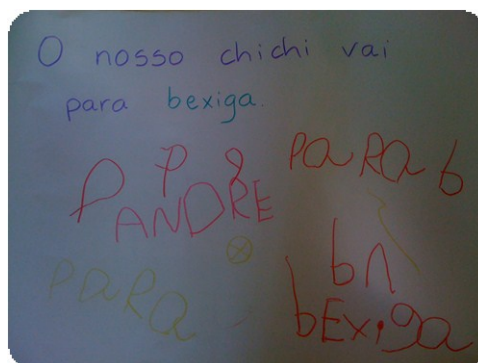 O nosso chichi vai
para bexiga.
P P 9
PaRa b
ANDRE
bn
PaRa
bEXiga